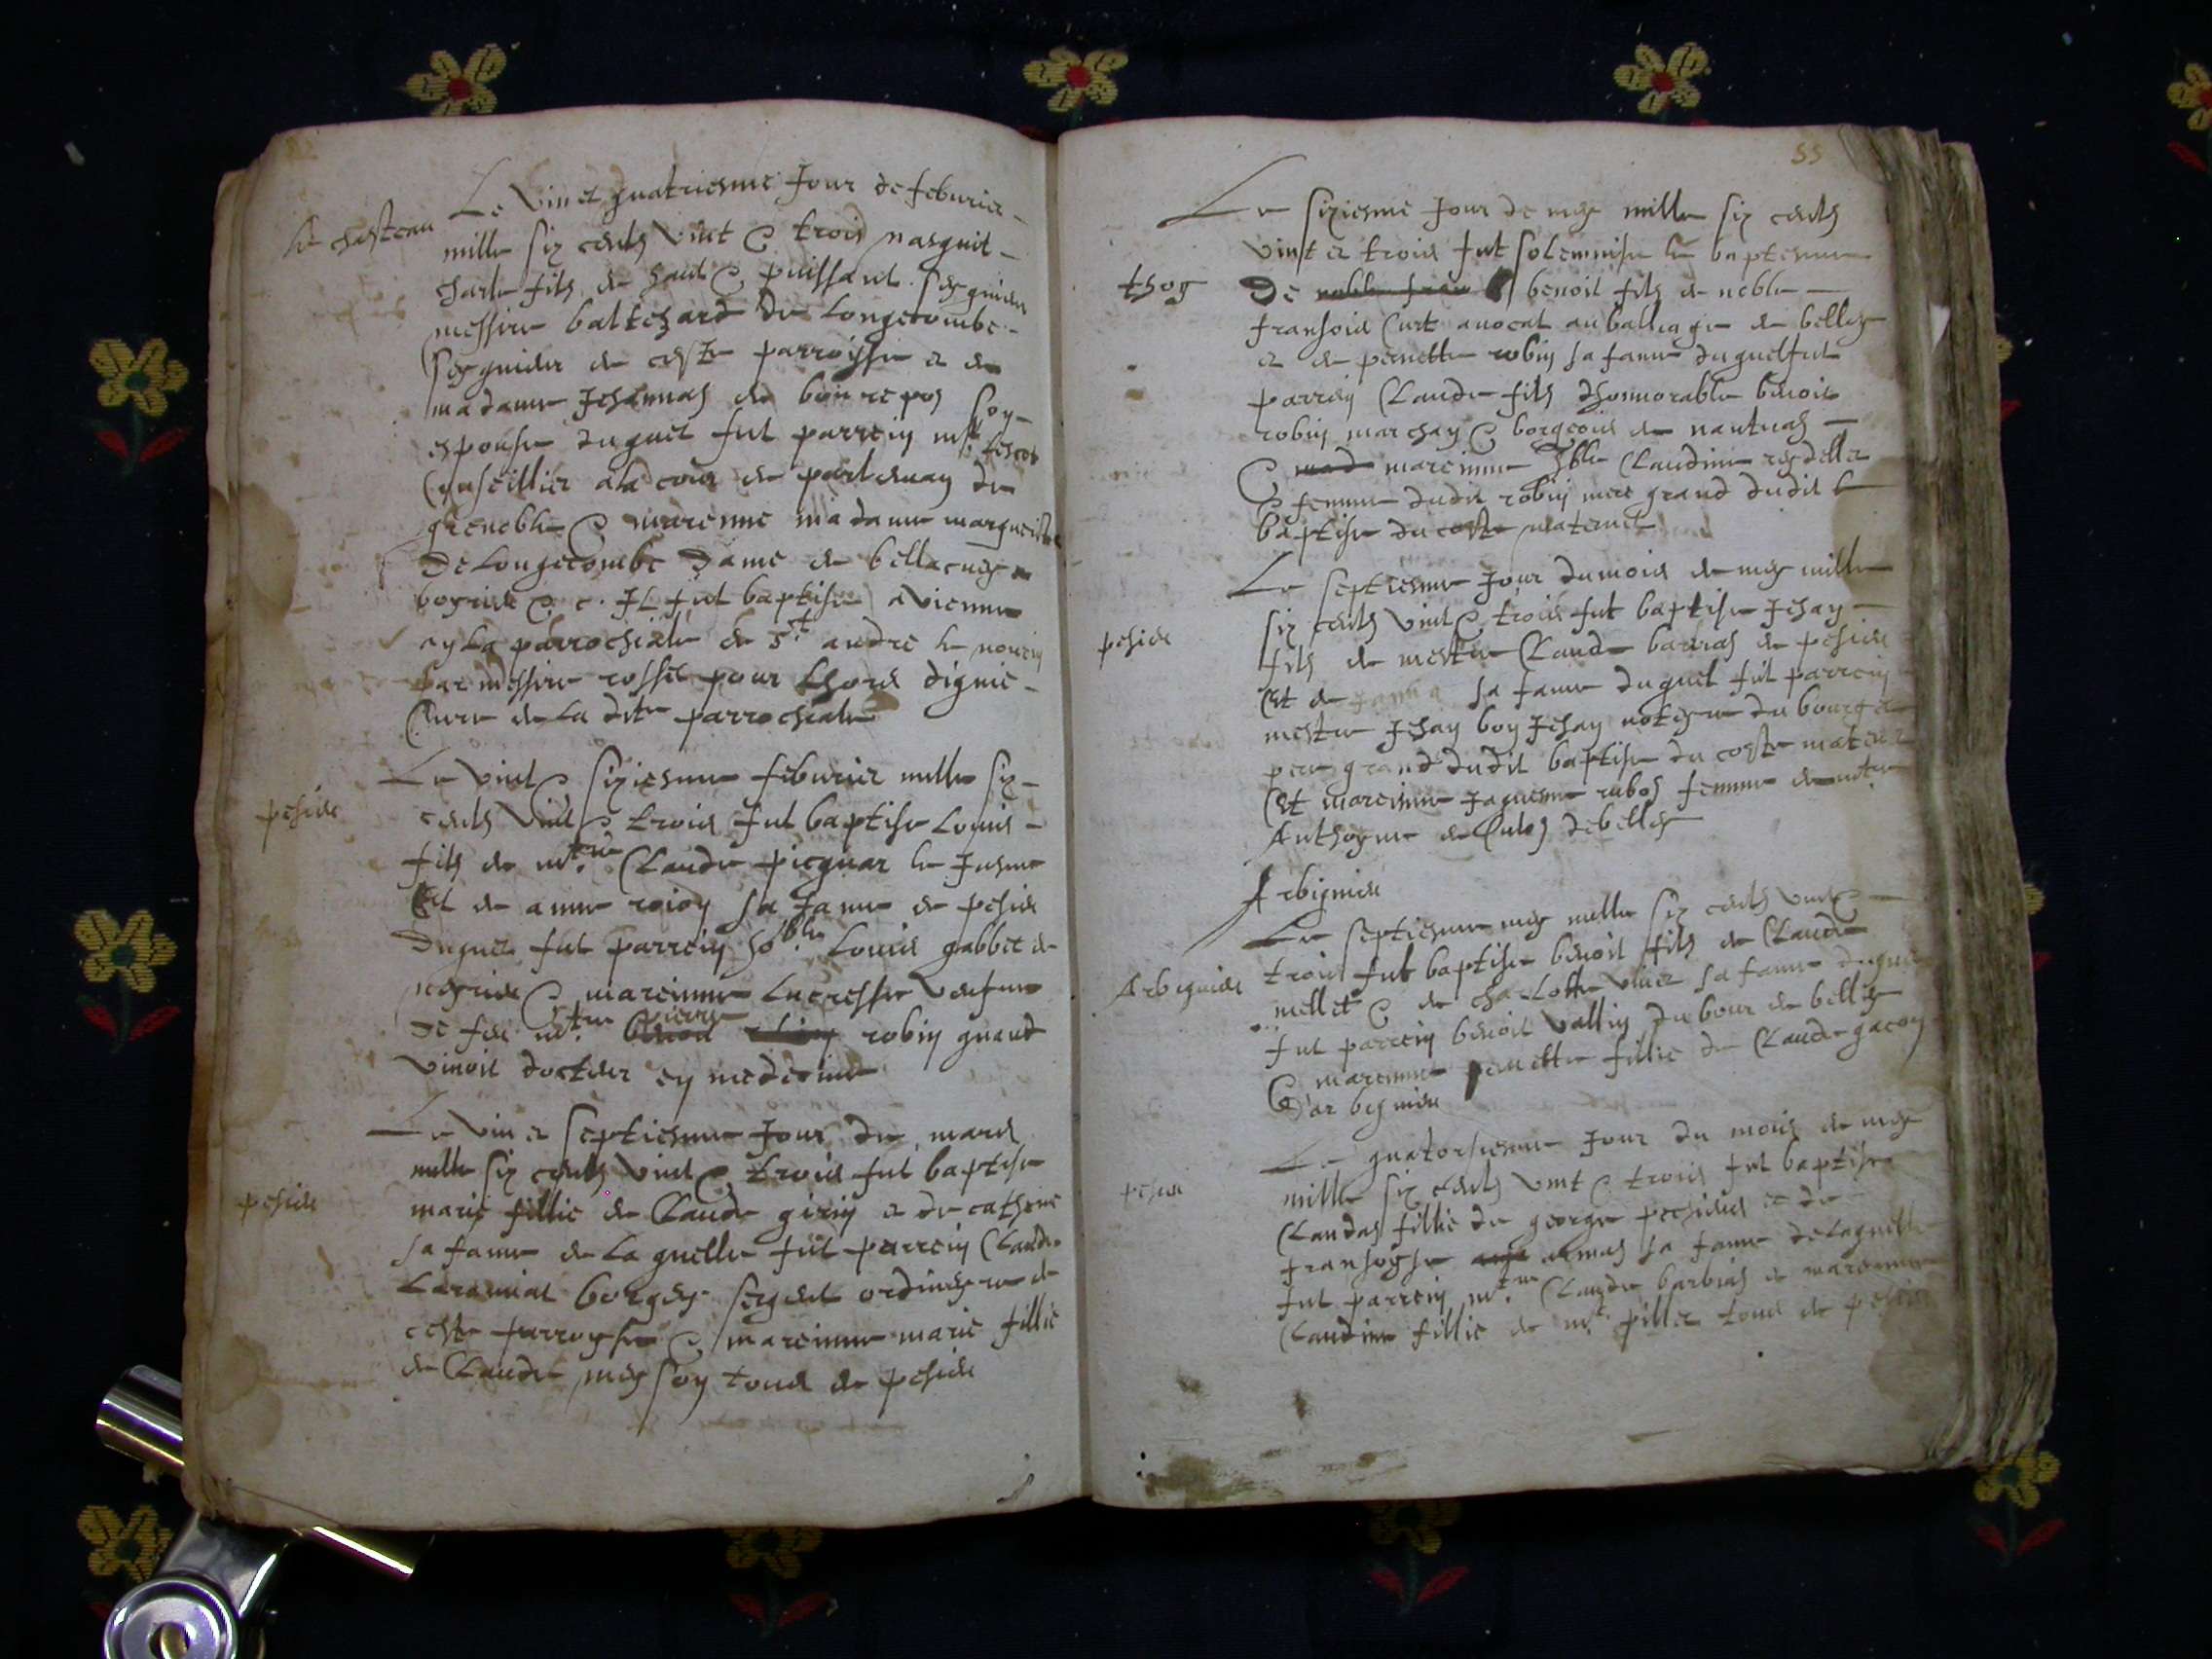 Le chasteau
Le vin et quatriesme Jour de feburier
mille six cents vint & trois nasquit
charle fils de haut & puissant seigneur
messire baltezard de Longecombe
seigneur de ceste parroisse et de
madame Jehanne de bon repos son
espouse duquel fut parrein
Conseillier a la cour de parlement de
grenoble & mareinne madame margueritte
De Longecombe Dame de
& c. Il fut baptise a vienne
en la parrochiale de St andre le
par messire rosset pour Lhors digne
Cure de la dite parrochiale
Le vint & siziesme feburier mille six
cents vint & trois fut baptise Louis
fils de mtre Claude picquar le Jeusne
Et de anne sa fame de
Duquel fut parrein hoble Louis gabbet de
& mareinne Lucresse vefue
De feu mtre pierre robin quant
vivoit docteur en medecine
Le vin et septiesme Jour de mars
mille six cents vint & trois fut baptise
marie fillie de Claude girin et de catherine
sa fame de La quelle fut parrein Claude
borgeys sergent ordinere de
ceste parroysse & mareinne marie fillie
de Claude tous de
55
thoy
Le siziesme Jour de mey mille six cents
vint et trois fut solemnise le baptesme
De benoit fils de noble
fransois Curt avocat au balliage de belley
et de pernette robin sa fame duquel fut
parrein Claude fils dhonnorable benoit
robin marchan & borgeois de nantuas
& mareinne hble Claudine
femme dudit robin mere grand dudit
baptise du coste maternel
Le septiesme Jour du mois de mey mille
six cents vint & trois fut baptise Jehan
fils de mestre Claude barras de
Et de sa fame duquel fut parrein
mestre Jehan bon Jehan notere du bourg et
pere grand dudit baptise du coste maternel
Et mareinne Jaquesme rubos femme de mtre
Anthoyne de belley
Arbignieu
Arbignieu
Le septiesme mey mille six cents vint &
trois fut baptise benoit fils de Claude
mellet & de charlotte sa fame duquel
fut parrein benoit vallin du bour de belley
& mareinne pernette fillie de Claude gacon
D'arbegnieu
Le quatorsiesme Jour du mois de mey
mille six cents vint & trois fut baptise
Claudas fillie de george et de
fransoyse sa fame de Laquelle
fut parrein mtre Claude barbias et mareinne
Claudine fillie de mt pillet tous de